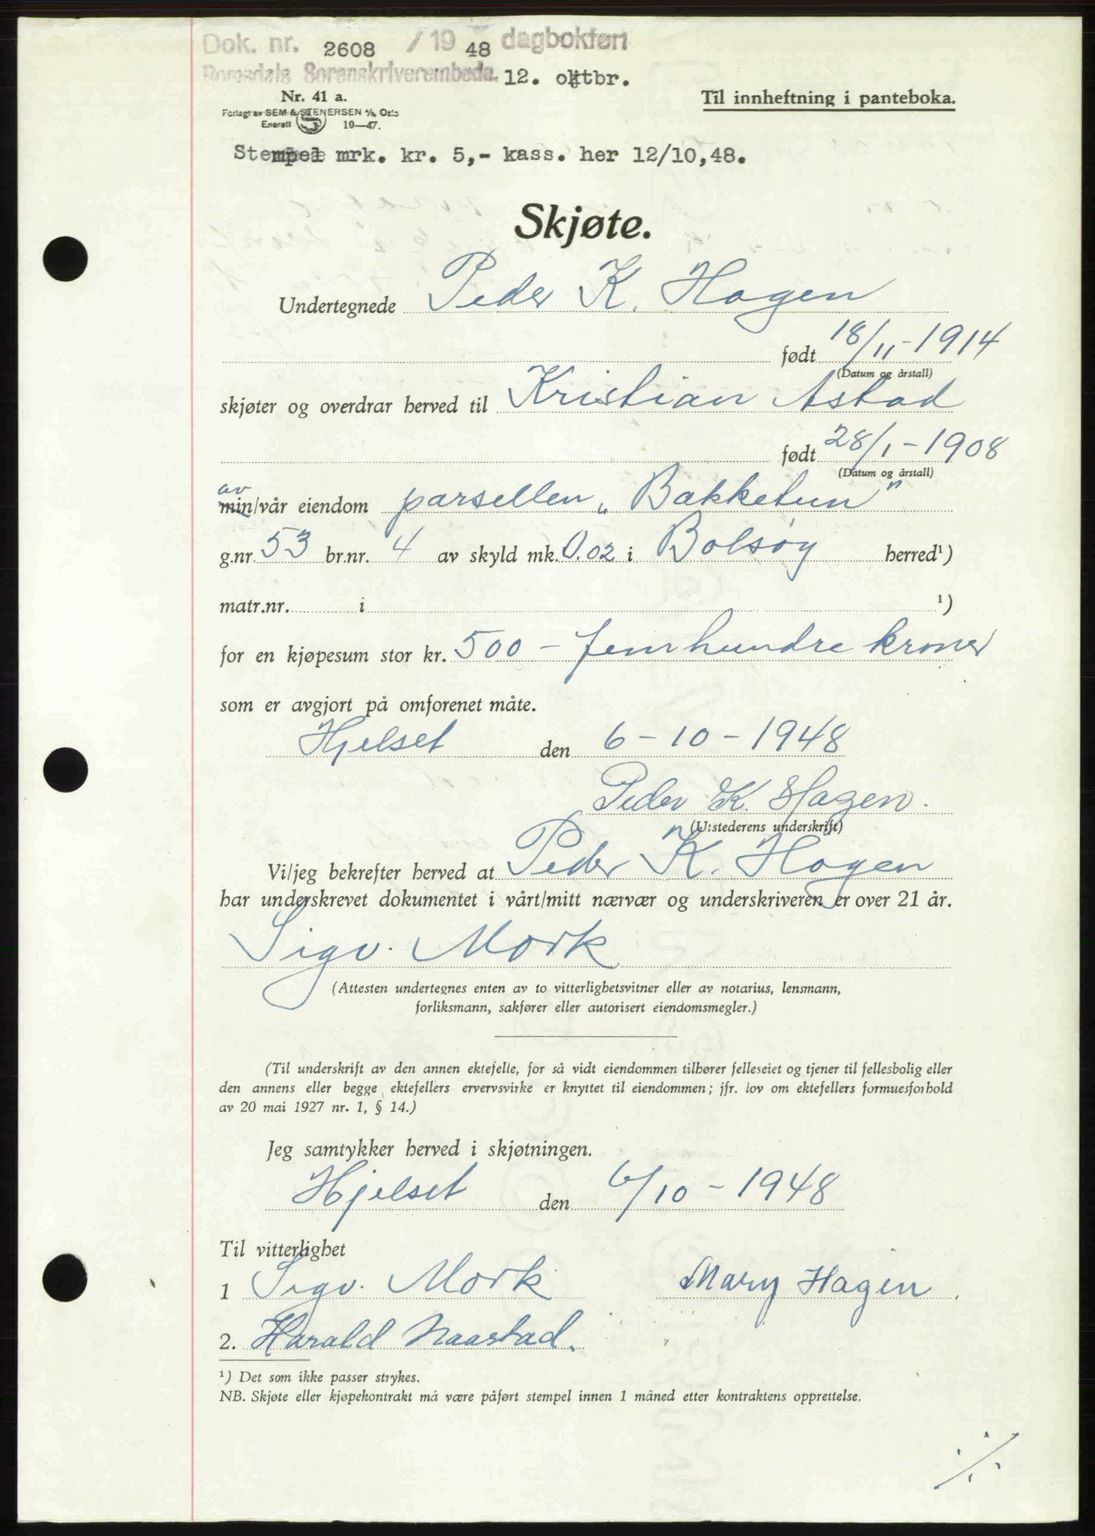 Dok. nr. 2608 / 19 48 dagbokført
Romsdals Sorenskriverembede. 12. oktbr.
Nr. 41 a.
Til innheftning i panteboka.
Forlagt av SEM & STENERSEN A/S, Oslo
Enerett S 10—47.
Stempel mrk. kr. 5,- kass. her 12/10,48.
Skjøte.
Undertegnede Peder K. Hagen
født 18/11-1914
(Datum og årstall)
skjøter og overdrar herved til Kristian Astad
født 28/1-1908
(Datum og årstall)
av
min/vår eiendom parsellen „Bakketun"
g.nr. 53 br.nr. 4 av skyld mk. 0.02 i Bolsøy herred¹)
matr.nr. i ¹)
for en kjøpesum stor kr. 500 - femhundre kroner
som er avgjort på omforenet måte.
Hjelset den 6-10-1948
Peder K. Hagen.
(Utstederens underskrift)
Vi/jeg bekrefter herved at Peder K. Hagen
har underskrevet dokumentet i vårt/mitt nærvær og underskriveren er over 21 år.
Sigv. Mork
(Attesten undertegnes enten av to vitterlighetsvitner eller av notarius, lensmann,
forliksmann, sakfører eller autorisert eiendomsmegler.)
(Til underskrift av den annen ektefelle, for så vidt eiendommen tilhører felleseiet og tjener til fellesbolig eller
den annens eller begge ektefellers ervervsvirke er knyttet til eiendommen; jfr. lov om ektefellers formuesforhold
av 20 mai 1927 nr. 1, § 14.)
Jeg samtykker herved i skjøtningen.
Hjelset den 6/10-1948
Til vitterlighet
1 Sigv. Mork Mary Hagen.
2. Harald Naastad.
¹) Det som ikke passer strykes.
NB. Skjøte eller kjøpekontrakt må være påført stempel innen 1 måned etter kontraktens opprettelse.